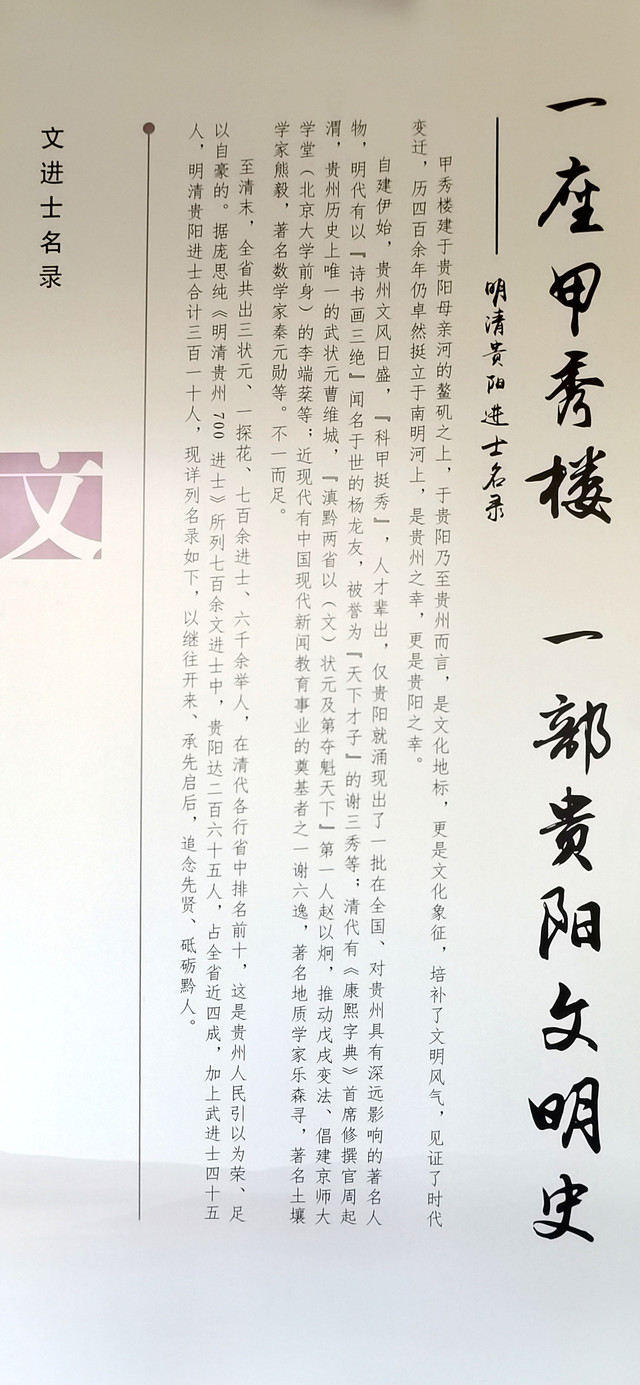 一座甲秀楼 一部贵阳文明史
明清贵阳进士名录
甲秀楼建于贵阳母亲河的鳌矶之上，于贵阳乃至贵州而言，是文化地标，更是文化象征，培补了文明风气，见证了时代
变迁，历四百余年仍卓然挺立于南明河上，是贵州之幸，更是贵阳之幸。
自建伊始，贵州文风日盛，『科甲挺秀』，人才辈出，仅贵阳就涌现出了一批在全国、对贵州具有深远影响的著名人
物，明代有以『诗书画三绝』闻名于世的杨龙友，被誉为『天下才子』的谢三秀等；清代有《康熙字典》首席修撰官周起
渭，贵州历史上唯一的武状元曹维城，『滇黔两省以（文）状元及第夺魁天下』第一人赵以炯，推动戊戌变法、倡建京师大
学堂（北京大学前身）的李端棻等；近现代有中国现代新闻教育事业的奠基者之一谢六逸，著名地质学家乐森寻，著名土壤
学家熊毅，著名数学家秦元勋等。不一而足。
至清末，全省共出三状元、一探花、七百余进士、六千余举人，在清代各行省中排名前十，这是贵州人民引以为荣、足
以自豪的。据庞思纯《明清贵州 700 进士》所列七百余文进士中，贵阳达二百六十五人，占全省近四成，加上武进士四十五
人，明清贵阳进士合计三百一十人，现详列名录如下，以继往开来、承先启后，追念先贤、砥砺黔人。
文进士名录
文